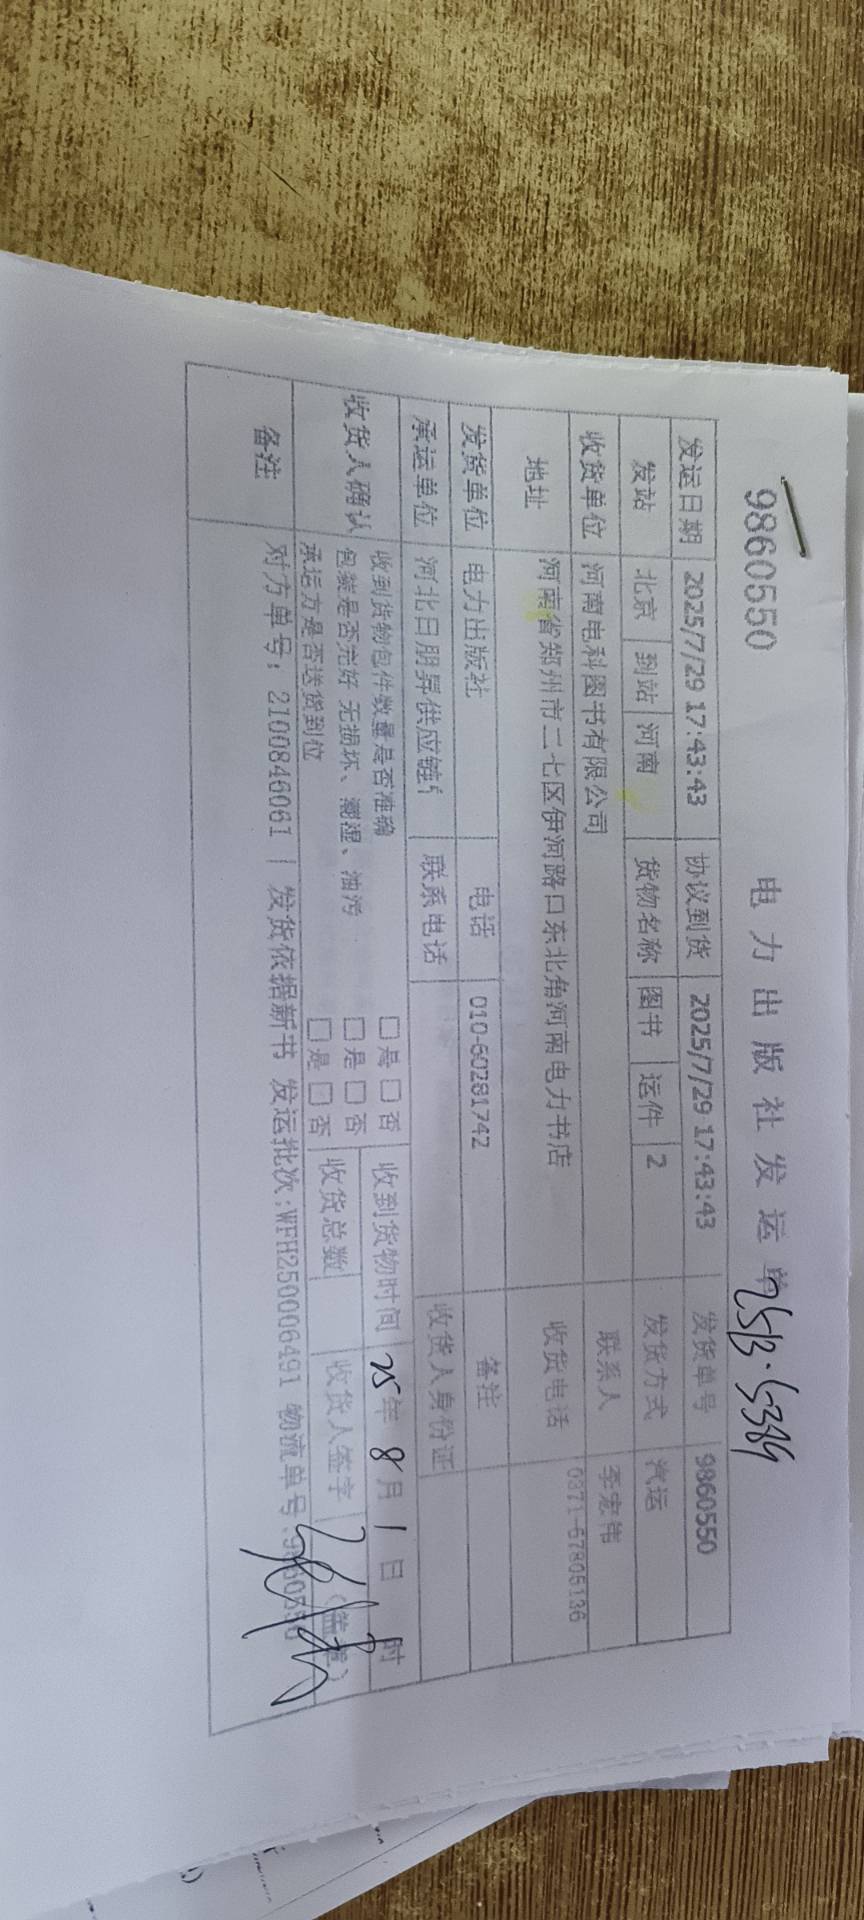 9860550
电力出版社发运单
发运日期 2025/7/29 17:43:43 协议到货 2025/7/29 17:43:43 发货单号 9860550
发站 北京 到站 河南 货物名称 图书 运件 2 发货方式 汽运
收货单位 河南电科图书有限公司 联系人 李宏伟
地址 河南省郑州市二七区伊河路口东北角河南电力书店 收货电话 0371-67805136
发货单位 电力出版社 电话 010-60281742 备注
承运单位 河北日朋昇供应链 联系电话 收货人身份证
收货人确认 收到货物包件数量是否准确 □是□否 收到货物时间 25年8月1日 时
包装是否完好 无损坏、潮湿、油污 □是□否 收货总数 收货人签字 (盖章)
承运方是否送货到位 □是□否
备注 对方单号：2100846061 | 发货依据新书 发运批次:WFH250006491 物流单号:9860550